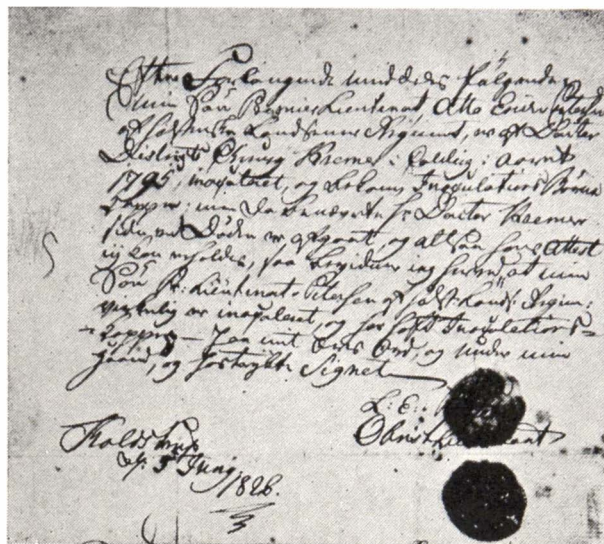 Efter Forlangende meddeeles følgende
min Søn Premier Lieutenant Otto Petersen
af Landsenere Regiment, er af Doctor
District Chirurg Kremer i Colding i Aaret
1795, inoqvleret, og bekom Inoqvlations Børne
Kopper; men da benævnte Hr Doctor Kremer
siden ved Døden er afgaaet, og altsaa hans Attest
ej kan erholdes, saa bevidner jeg herved, at min
Søn Pr: Lieutenant Petersen af Holst: Lands: Regim:
virkelig er inoqvleret, og har haft Inoqvlations-
Kopper — paa mit Ord, og under min
Haand, og hostrykte Signet
L: E:
Obrist Lieutenant
d. 5 Juny
1826.